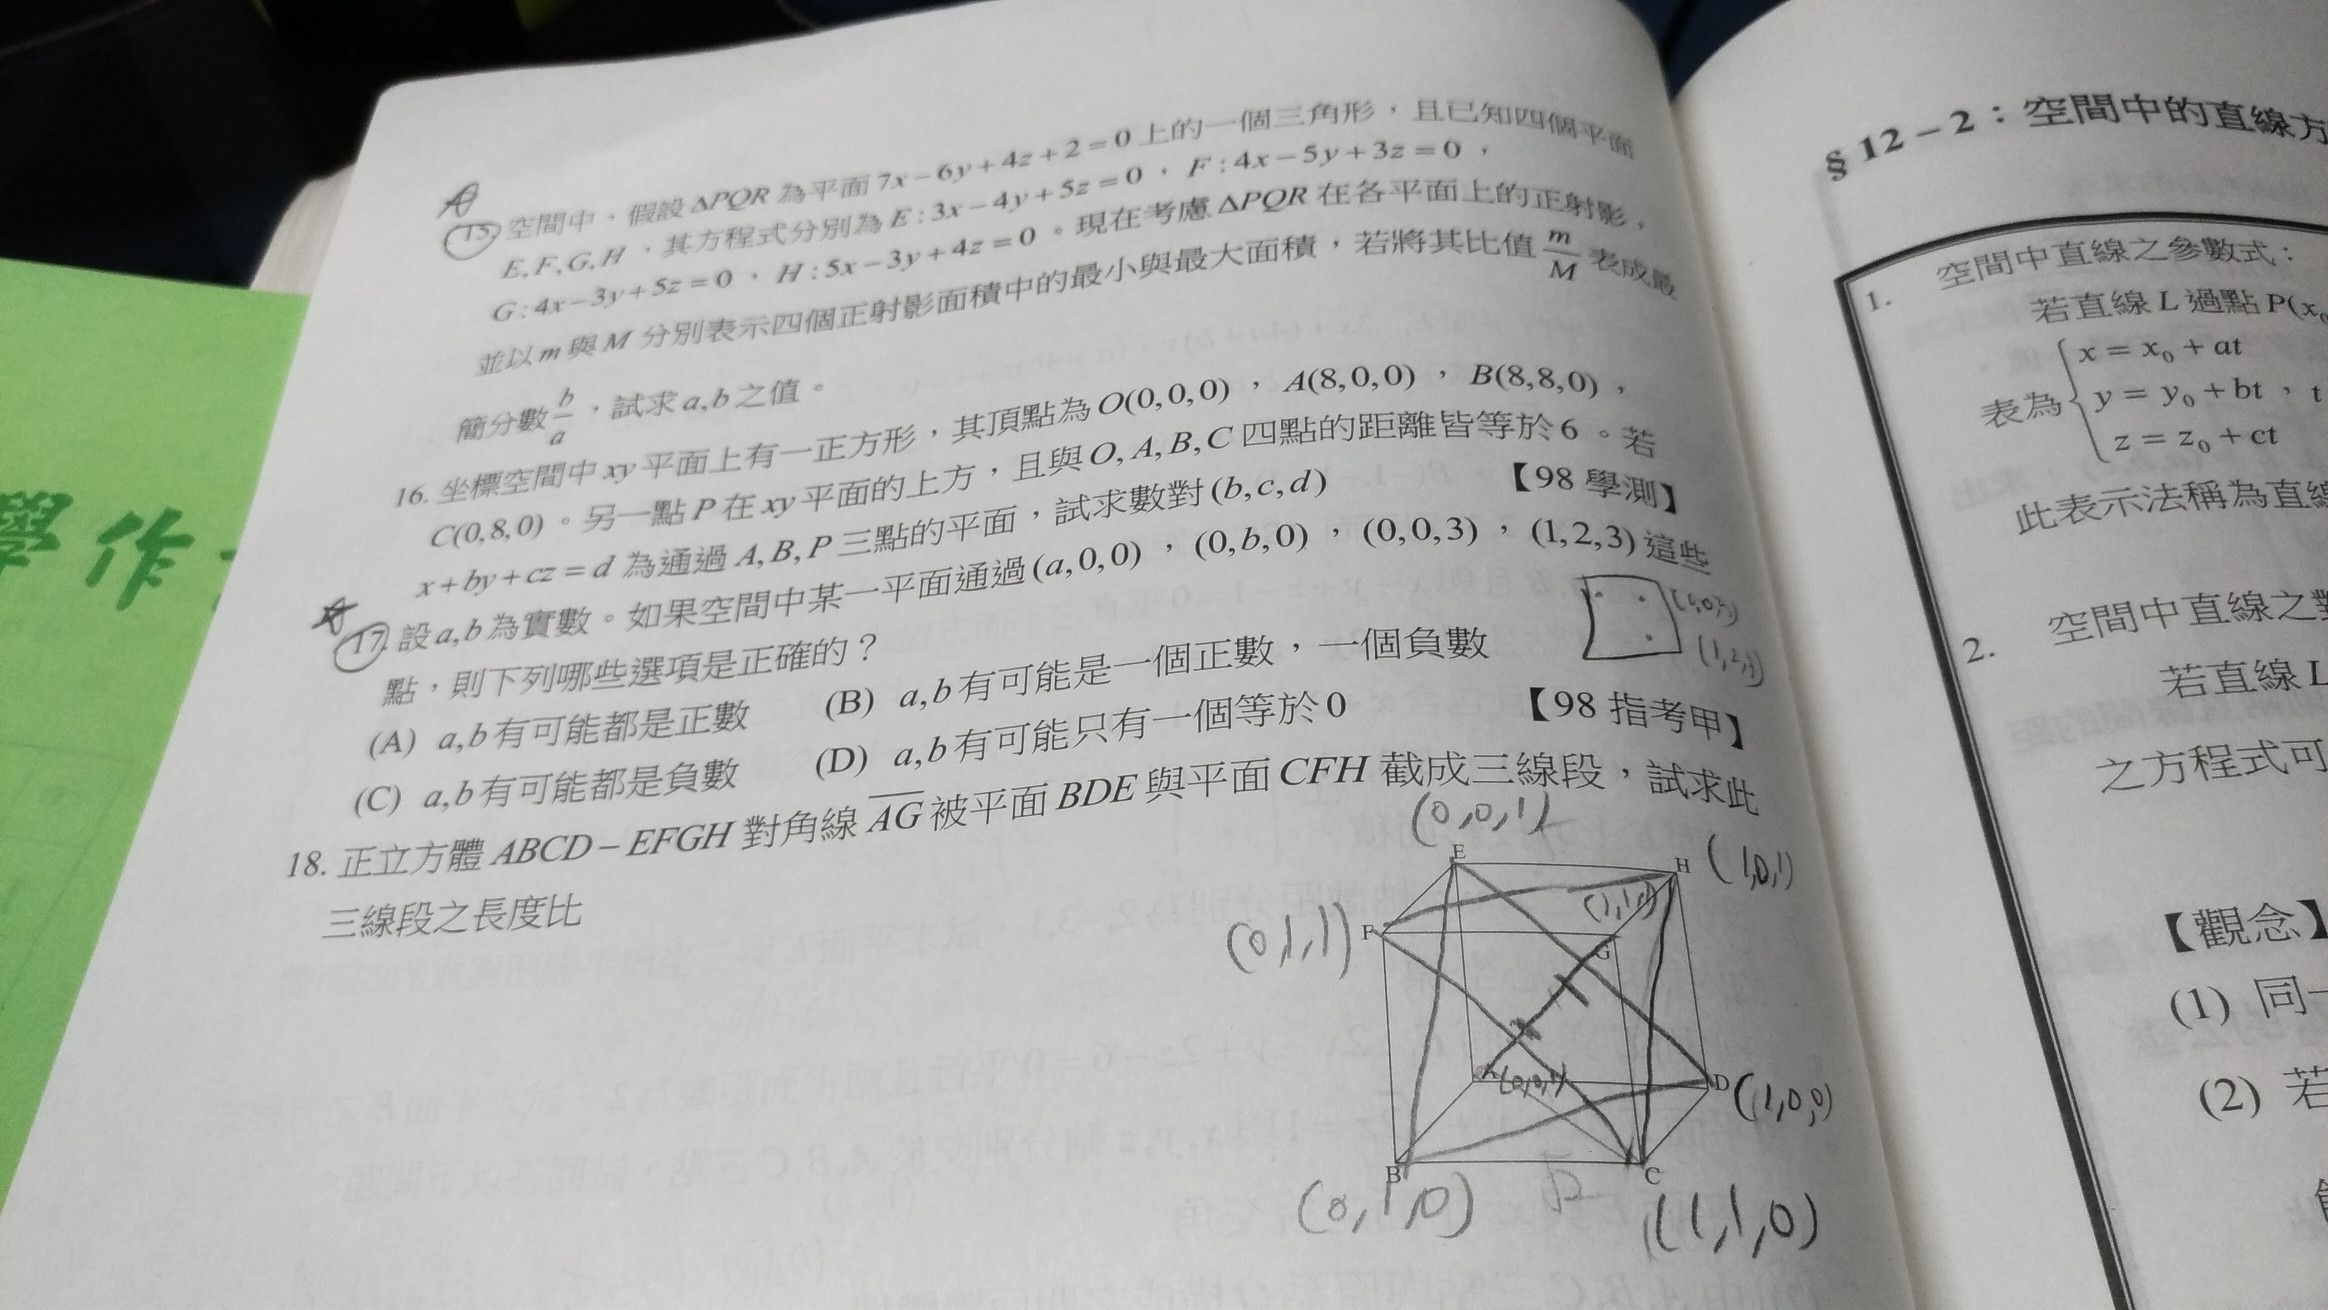 學作
15. 空間中，假設 ΔPQR 為平面 7x－6y＋4z＋2＝0 上的一個三角形，且已知四個平面
E,F,G,H，其方程式分別為 E:3x－4y＋5z＝0，F:4x－5y＋3z＝0，
G:4x－3y＋5z＝0，H:5x－3y＋4z＝0。現在考慮 ΔPQR 在各平面上的正射影，
並以 m 與 M 分別表示四個正射影面積中的最小與最大面積，若將其比值 m/M 表成最
簡分數 b/a，試求 a,b 之值。
16. 坐標空間中 xy 平面上有一正方形，其頂點為 O(0,0,0)，A(8,0,0)，B(8,8,0)，
C(0,8,0)。另一點 P 在 xy 平面的上方，且與 O,A,B,C 四點的距離皆等於 6。若
x+by+cz=d 為通過 A,B,P 三點的平面，試求數對 (b,c,d) 【98 學測】
17. 設 a,b 為實數。如果空間中某一平面通過 (a,0,0)，(0,b,0)，(0,0,3)，(1,2,3) 這些
點，則下列哪些選項是正確的？
(0,0,3)
(1,2,3)
(A) a,b 有可能都是正數 (B) a,b 有可能是一個正數，一個負數
(C) a,b 有可能都是負數 (D) a,b 有可能只有一個等於 0 【98 指考甲】
18. 正立方體 ABCD－EFGH 對角線 AG 被平面 BDE 與平面 CFH 截成三線段，試求此
三線段之長度比
(0,0,1)
E
H (1,0,1)
(0,1,1) F
(1,1,1)
G
A
D (1,0,0)
B
C
(0,1,0)
√2
(1,1,0)
§12－2：空間中的直線方
1. 空間中直線之參數式：
若直線 L 過點 P(x₀
表為 { x = x₀ + at
y = y₀ + bt ， t
z = z₀ + ct
此表示法稱為直線
2. 空間中直線之對
若直線 L
之方程式可
【觀念】
(1) 同一
(2) 若